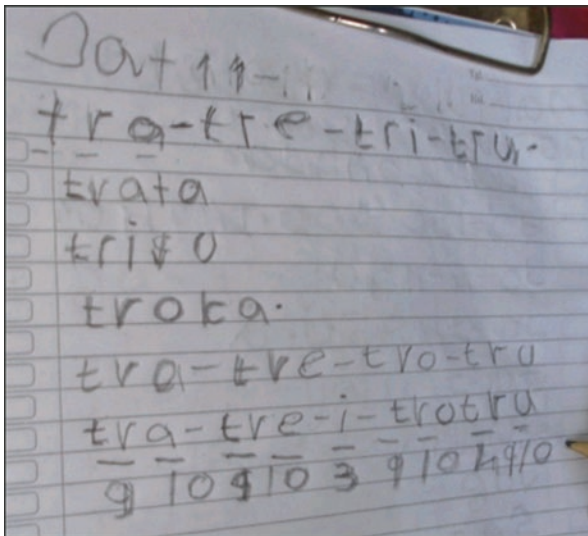 Dat 11-11
tra-tre-tri-tru.
trata
trivo
troka.
tra-tre-tro-tru
tra-tre-i-trotru
9 10 9 10 3 9 10 4 9 10